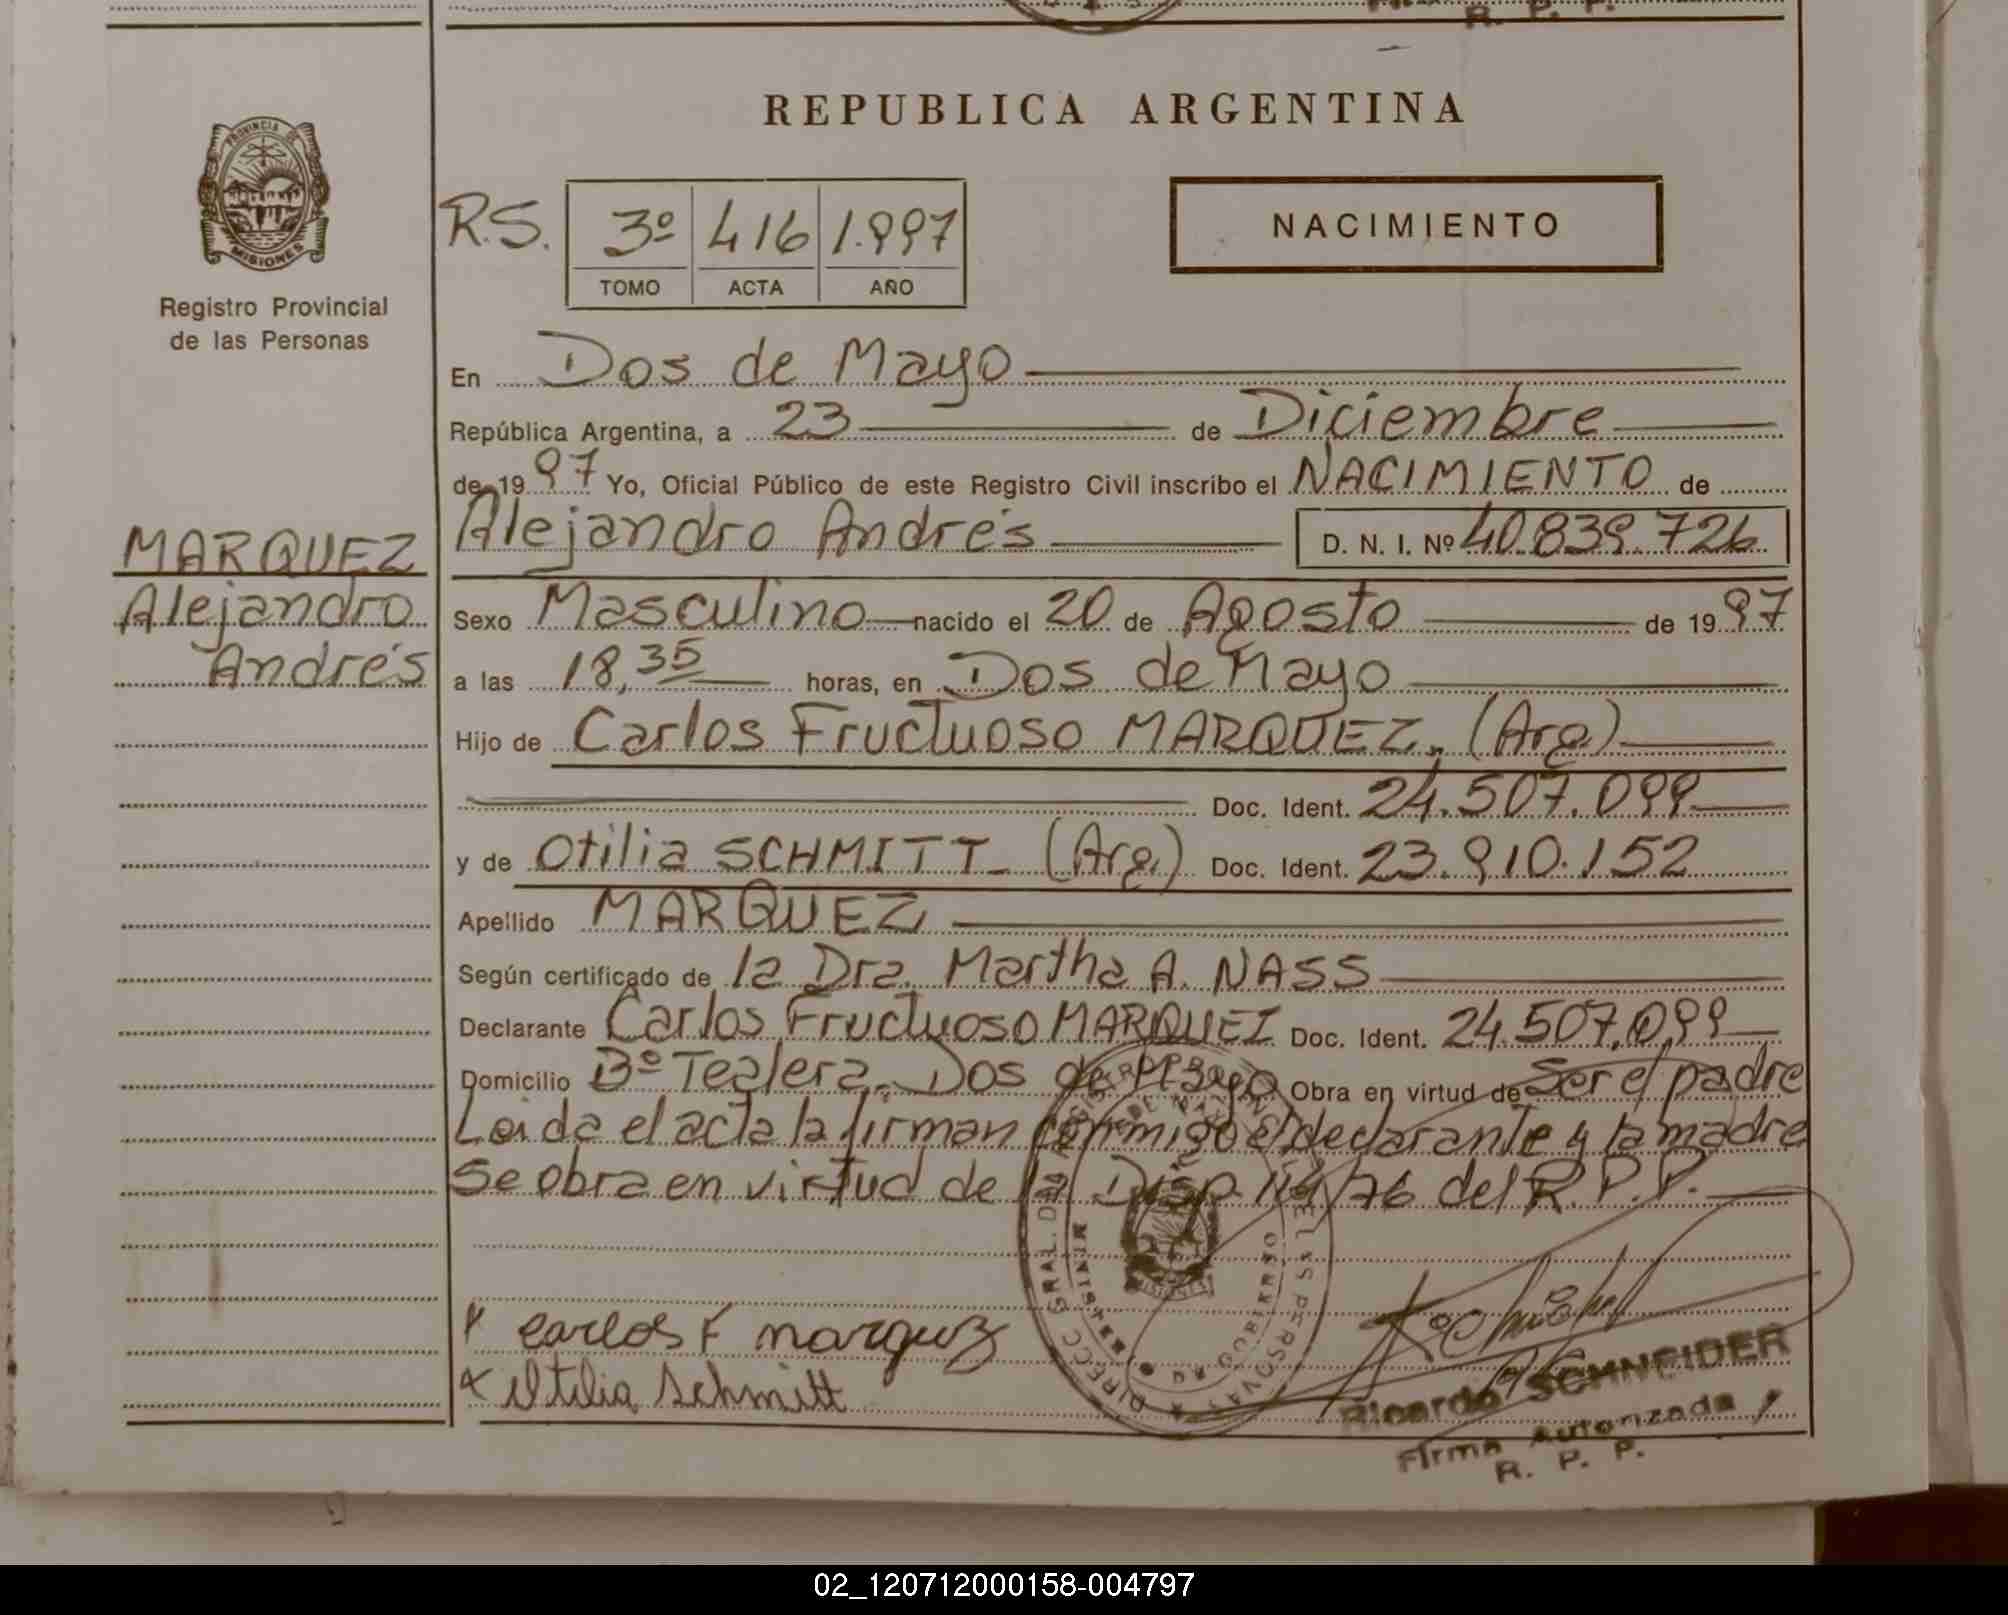 R. P. P.
REPUBLICA ARGENTINA
PROVINCIA DE
MISIONES
Registro Provincial
de las Personas
R.S. 3º 416 1.997
TOMO ACTA AÑO
NACIMIENTO
En Dos de Mayo
República Argentina, a 23 de Diciembre
de 19 97 Yo, Oficial Público de este Registro Civil inscribo el NACIMIENTO de
MARQUEZ
Alejandro
Andrés
Alejandro Andrés D. N. I. Nº 40.839.726
Sexo Masculino nacido el 20 de Agosto de 19 97
a las 18,35 horas, en Dos de Mayo
Hijo de Carlos Fructuoso MARQUEZ, (Arg)
Doc. Ident. 24.507.099
y de Otilia SCHMITT (Arg.) Doc. Ident. 23.910.152
Apellido MARQUEZ
Según certificado de la Dra. Martha A. NASS
Declarante Carlos Fructuoso MARQUEZ Doc. Ident. 24.507.099
Domicilio Bº Tealera, Dos de Mayo Obra en virtud de Ser el padre
Leida el acta la firman conmigo el declarante y la madre
Se obra en virtud de la Disp. 114/76 del R.P.P.
x Carlos F marquz
x Otilia Schmitt
Ricardo SCHNEIDER
Firma Autorizada
R. P. P.
02_120712000158-004797